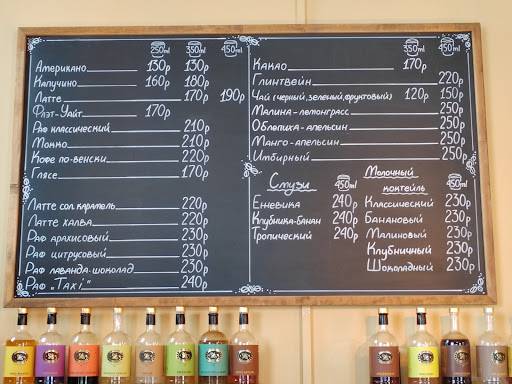 250ml 350ml 450ml
Американо 130р 130р
Капучино 160р 180р
Латте 170р 190р
Флэт-Уайт 170р
Раф классический 210р
Мокко 210р
Кофе по-венски 220р
Глясе 170р
Латте сол.карамель 220р
Латте халва 220р
Раф арахисовый 230р
Раф цитрусовый 230р
Раф лаванда-шоколад 230р
Раф „Taxi" 240р
350ml 450ml
Какао 170р
Глинтвейн 220р
Чай (черный,зеленый,фруктовый) 120р 150р
Малина-лемонграсс 250р
Облепиха-апельсин 250р
Манго-апельсин 250р
Имбирный 250р
Смузи 450ml
Ежевика 240р
Клубника-Банан 240р
Тропический 240р
Молочный
коктейль 450ml
Классический 230р
Банановый 230р
Малиновый 230р
Клубничный 230р
Шоколадный 230р